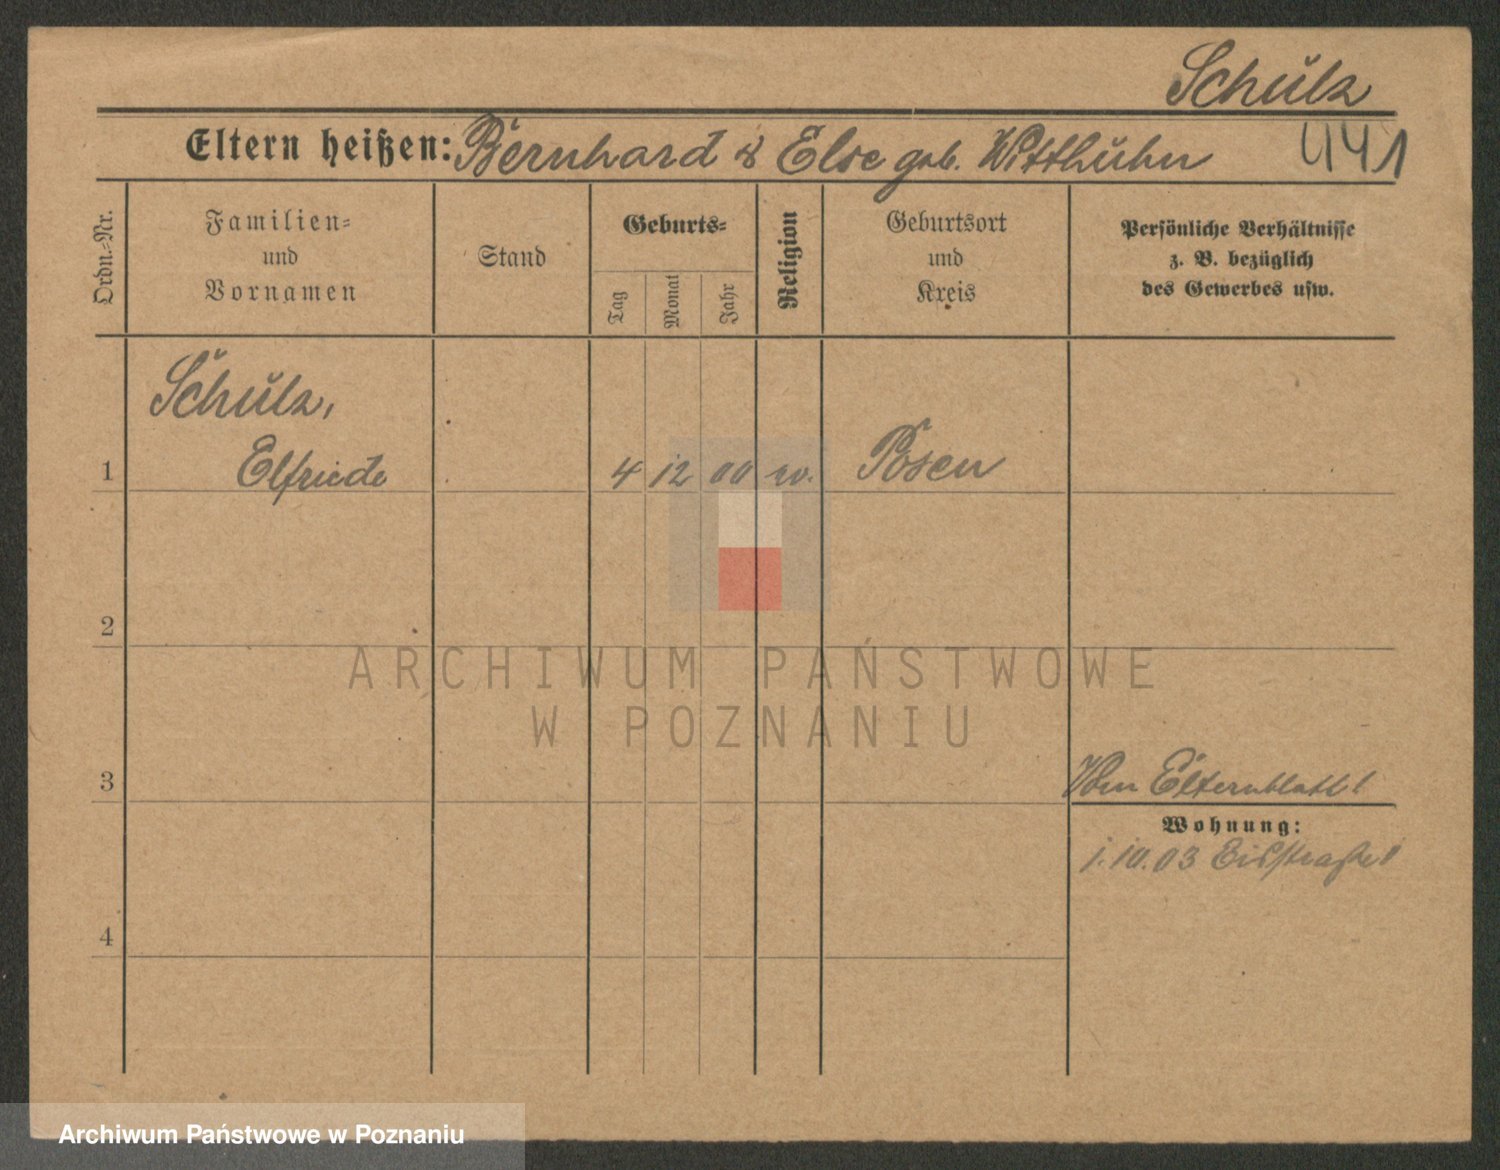 Schulz
Eltern heißen: Bernhard & Else geb. Witthuhn 441
Ordn.-Nr.
Familien-
und
Vornamen
Stand
Geburts-
Tag
Monat
Jahr
Religion
Geburtsort
und
Kreis
Persönliche Verhältnisse
z. B. bezüglich
des Gewerbes usw.
Schulz,
1 Elfriede 4 12 00 w. Posen
2
ARCHIWUM PAŃSTWOWE
W POZNANIU
3 Vom Elternblatt!
Wohnung:
1.10.03 Eisstraße
4
Archiwum Państwowe w Poznaniu